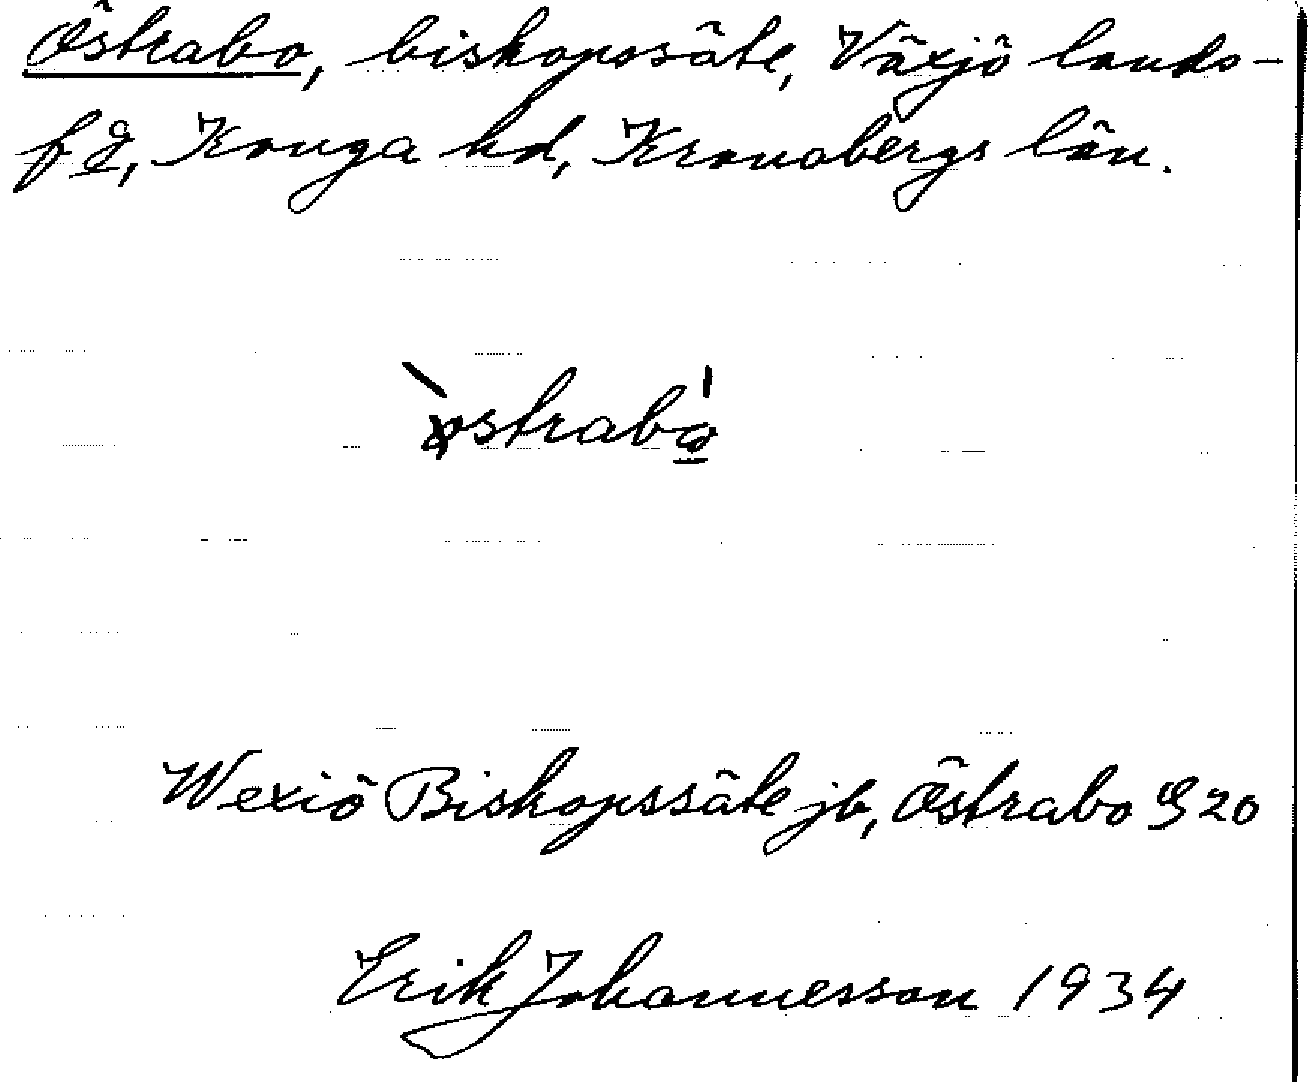 Östrabo, biskopssäte, Växjö lands-
fg, Konga hd, Kronobergs län.
østrabo
Wexiö Biskopssäte jb, Östrabo G 20
Erik Johannesson 1934